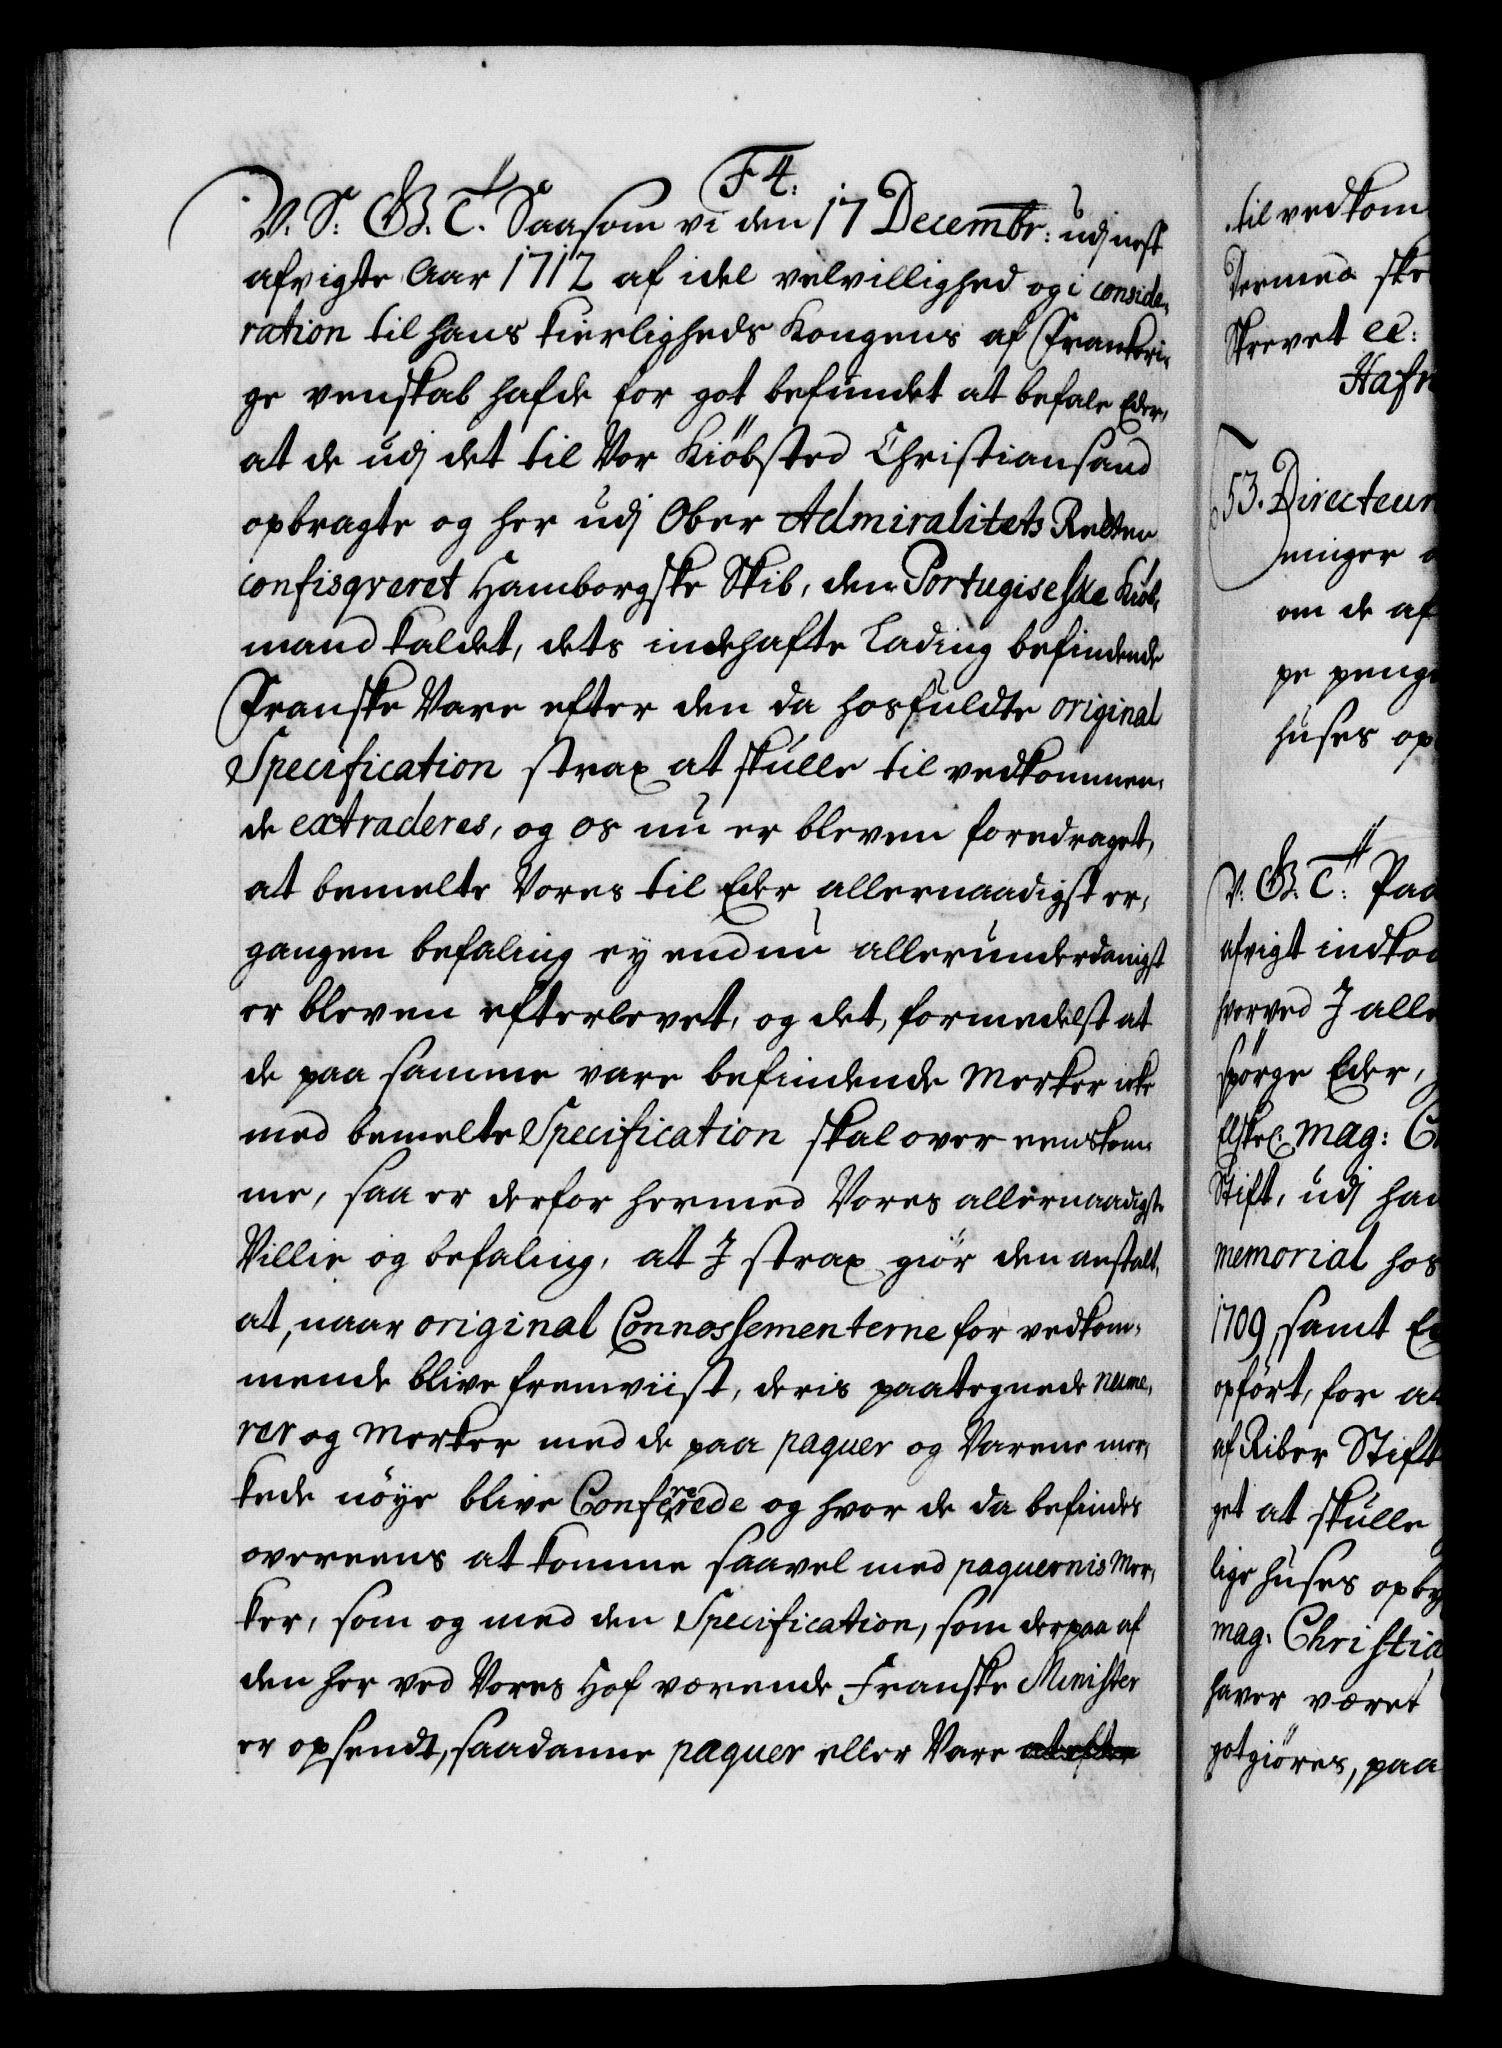 F 4.
V. S. G. T. Saasom vi den 17 Decembr: udj nest
afvigte Aar 1712 af idel velvillighed og i conside,
ration til hans Kierligheds Kongens af Frankeri,
ge venskab hafde for got befundet at befale Eder,
at de udj det til Vor Kiöbsted Christiansand
opbragte og her udj Ober Admiralitets Retten
confisqveret Hamborgske Skib, den Portugiseske Kiöb,
mand kaldet, dets indehafte Lading befindende
Franske Vare efter den da hosfuldte original
Specification strax at skulle til vedkommen,
de extraderes, og os nu er bleven foredraget,
at bemelte Vores til Eder allernaadigst er,
gangen befaling ey endnu allerunderdanigst
er bleven efterlevet, og det, formedelst at
de paa samme vare befindende Merker icke
med bemelte Specification skal over eenskom,
me, saa er derfor hermed Vores allernaadigste
Villie og befaling, at I strax giör den anstalt,
at, naar original Connossementerne for vedkom,
mende blive fremviist, deris paategnede nume,
rer og Merker med de paa paquer og Varene mer,
kede nöye blive Confererede og hvor de da befindes
overeens at komme saavel med paquernis Mer,
ker, som og med den Specification, som derpaa af
den her ved Vores Hof værende Franske Minister
er opsendt, saadanne paquer eller Vare at efter
til vedkom
dermed ske
Skrevet ec:
Hafn
53. Directeur
ninger
om de af
pe penge
huses op
V. G. T. Paa
afvigt indkom
hvorved I alle
spörge Eder,
Elskel: Mag: C
Stift, udj han
memorial hos
1709, samt E
opfört, for at
af Riber Stift
get at skulle
lige huses opby
mag: Christia
haver været
gotgiöres, paa